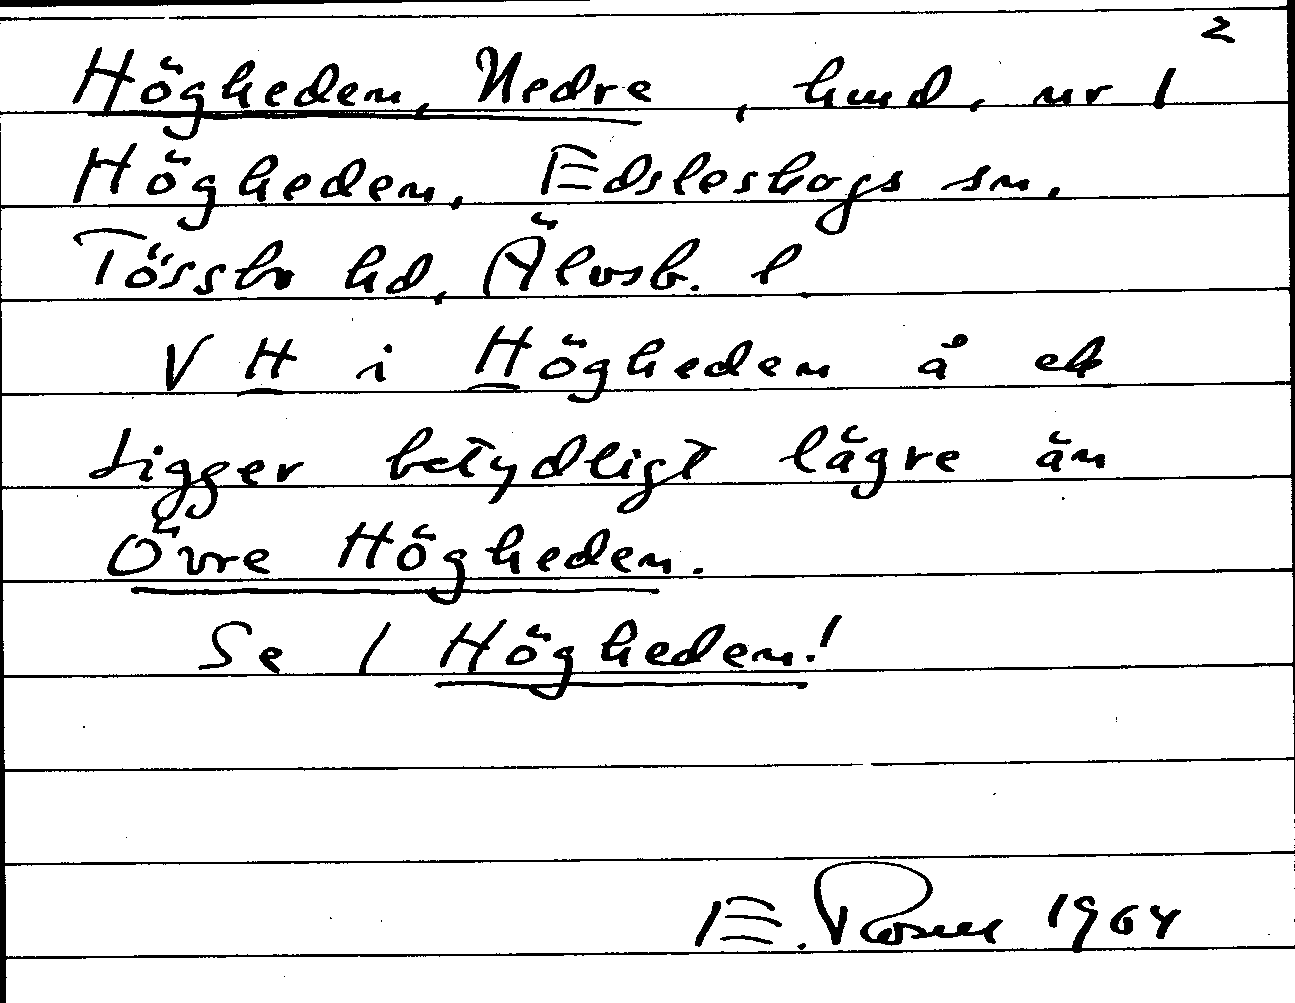 2
Högheden, Nedre, hmd, nr 1
Högheden, Edsleskogs sn,
Tössbo hd, Älvsb. l
V H i Högheden å ek
Ligger betydligt lägre än
Övre Högheden.
Se 1 Högheden!
E. Rosell 1964